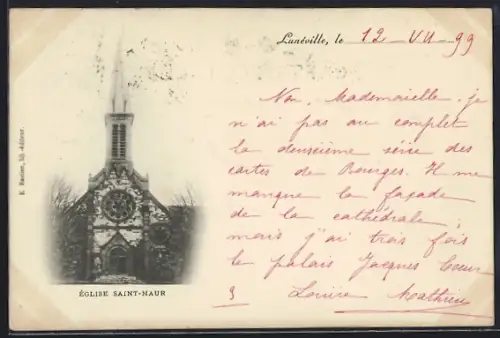 Lunéville, le 12 VII 99
Non, Mademoiselle, je
n'ai pas au complet
la deuxième série des
cartes de Bourges. Il me
manque la façade
de la cathédrale,
mais j'ai trois fois
le palais Jacques Coeur
Louise Mathieu
ÉGLISE SAINT-MAUR
E. Bastien, lib.-éditeur.